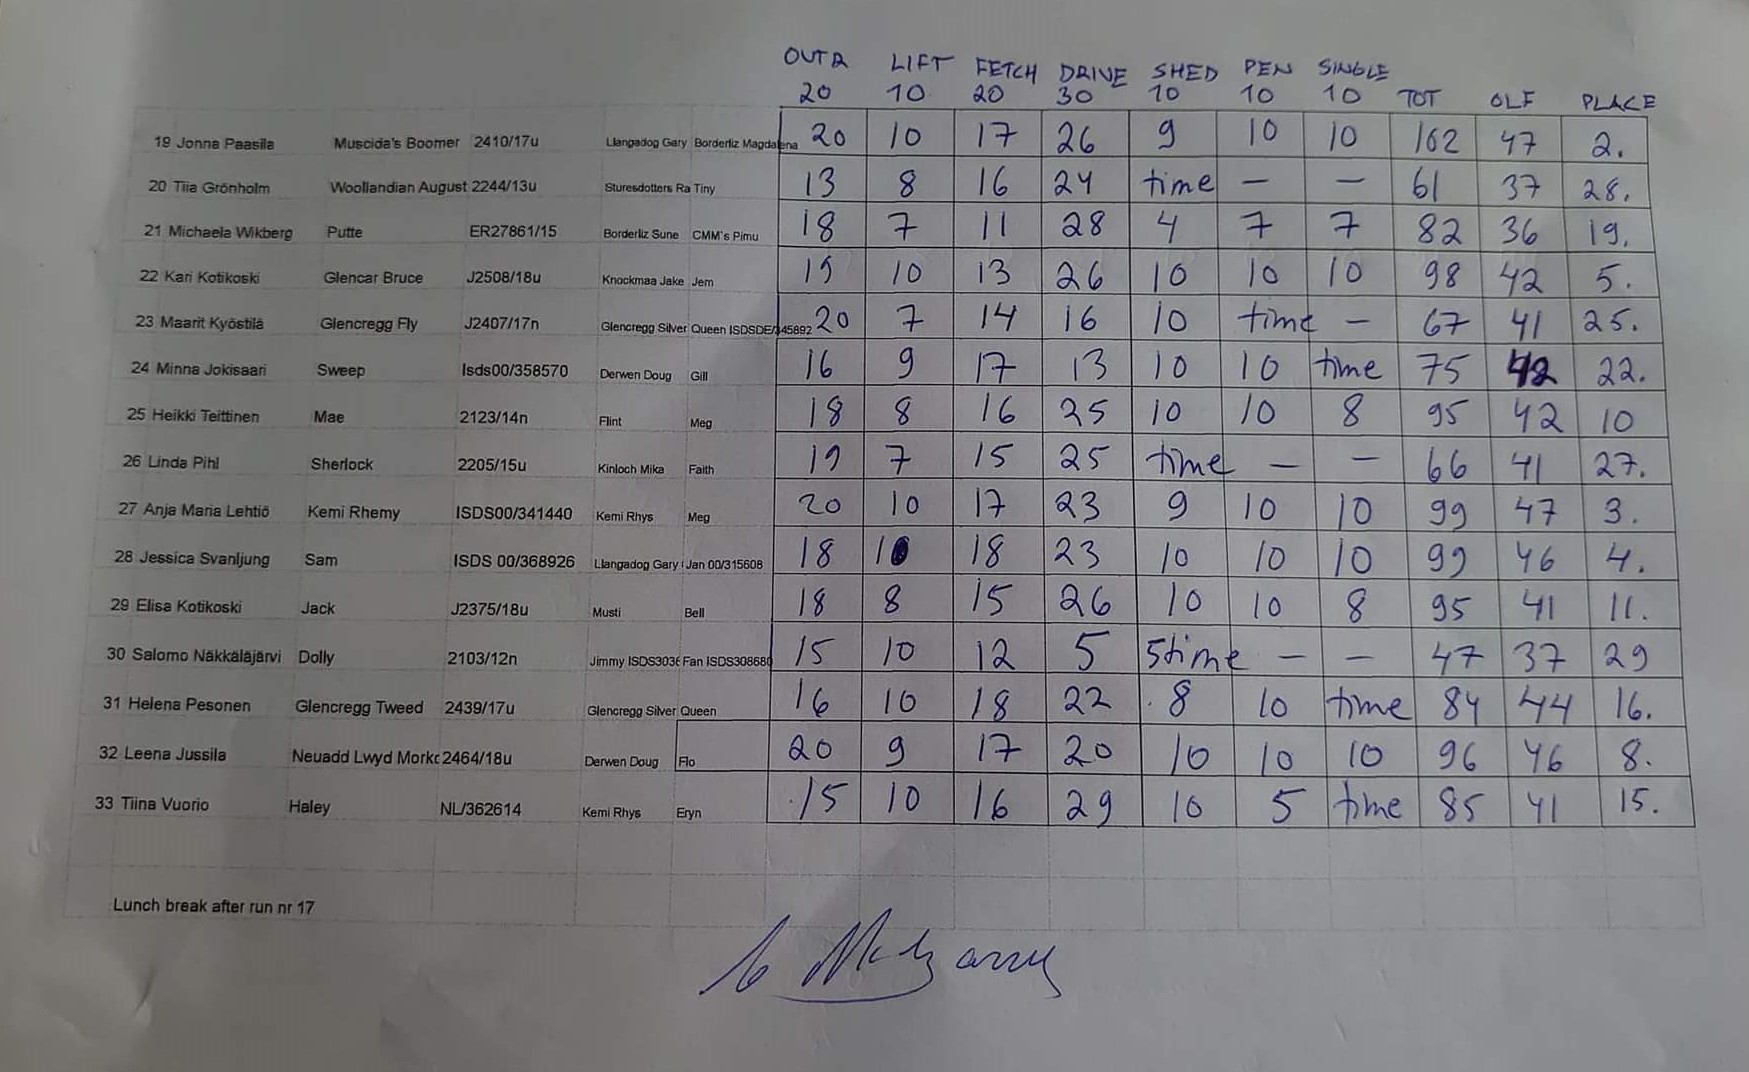 OUTR LIFT FETCH DRIVE SHED PEN SINGLE
20 10 20 30 10 10 10 TOT OLF PLACE
19 Jonna Paasila Muscida's Boomer 2410/17u Llangadog Gary Borderliz Magdalena 20 10 17 26 9 10 10 102 47 2.
20 Tiia Grönholm Woollandian August 2244/13u Sturesdotters Ra Tiny 13 8 16 24 time – – 61 37 28.
21 Michaela Wikberg Putte ER27861/15 Borderliz Sune CMM's Pimu 18 7 11 28 4 7 7 82 36 19.
22 Kari Kotikoski Glencar Bruce J2508/18u Knockmaa Jake Jem 19 10 13 26 10 10 10 98 42 5.
23 Maarit Kyöstilä Glencregg Fly J2407/17n Glencregg Silver Queen ISDSDE/345892 20 7 14 16 10 time – 67 41 25.
24 Minna Jokisaari Sweep Isds00/358570 Derwen Doug Gill 16 9 17 13 10 10 time 75 42 22.
25 Heikki Teittinen Mae 2123/14n Flint Meg 18 8 16 25 10 10 8 95 42 10
26 Linda Pihl Sherlock 2205/15u Kinloch Mika Faith 19 7 15 25 time – – 66 41 27.
27 Anja Maria Lehtiö Kemi Rhemy ISDS00/341440 Kemi Rhys Meg 20 10 17 23 9 10 10 99 47 3.
28 Jessica Svanljung Sam ISDS 00/368926 Llangadog Gary Jan 00/315608 18 10 18 23 10 10 10 99 46 4.
29 Elisa Kotikoski Jack J2375/18u Musti Bell 18 8 15 26 10 10 8 95 41 11.
30 Salomo Näkkäläjärvi Dolly 2103/12n Jimmy ISDS303 Fan ISDS308680 15 10 12 5 5 time – – 47 37 29
31 Helena Pesonen Glencregg Tweed 2439/17u Glencregg Silver Queen 16 10 18 22 8 10 time 84 44 16.
32 Leena Jussila Neuadd Lwyd Morkc 2464/18u Derwen Doug Flo 20 9 17 20 10 10 10 96 46 8.
33 Tiina Vuorio Haley NL/362614 Kemi Rhys Eryn 15 10 16 29 10 5 time 85 41 15.
Lunch break after run nr 17